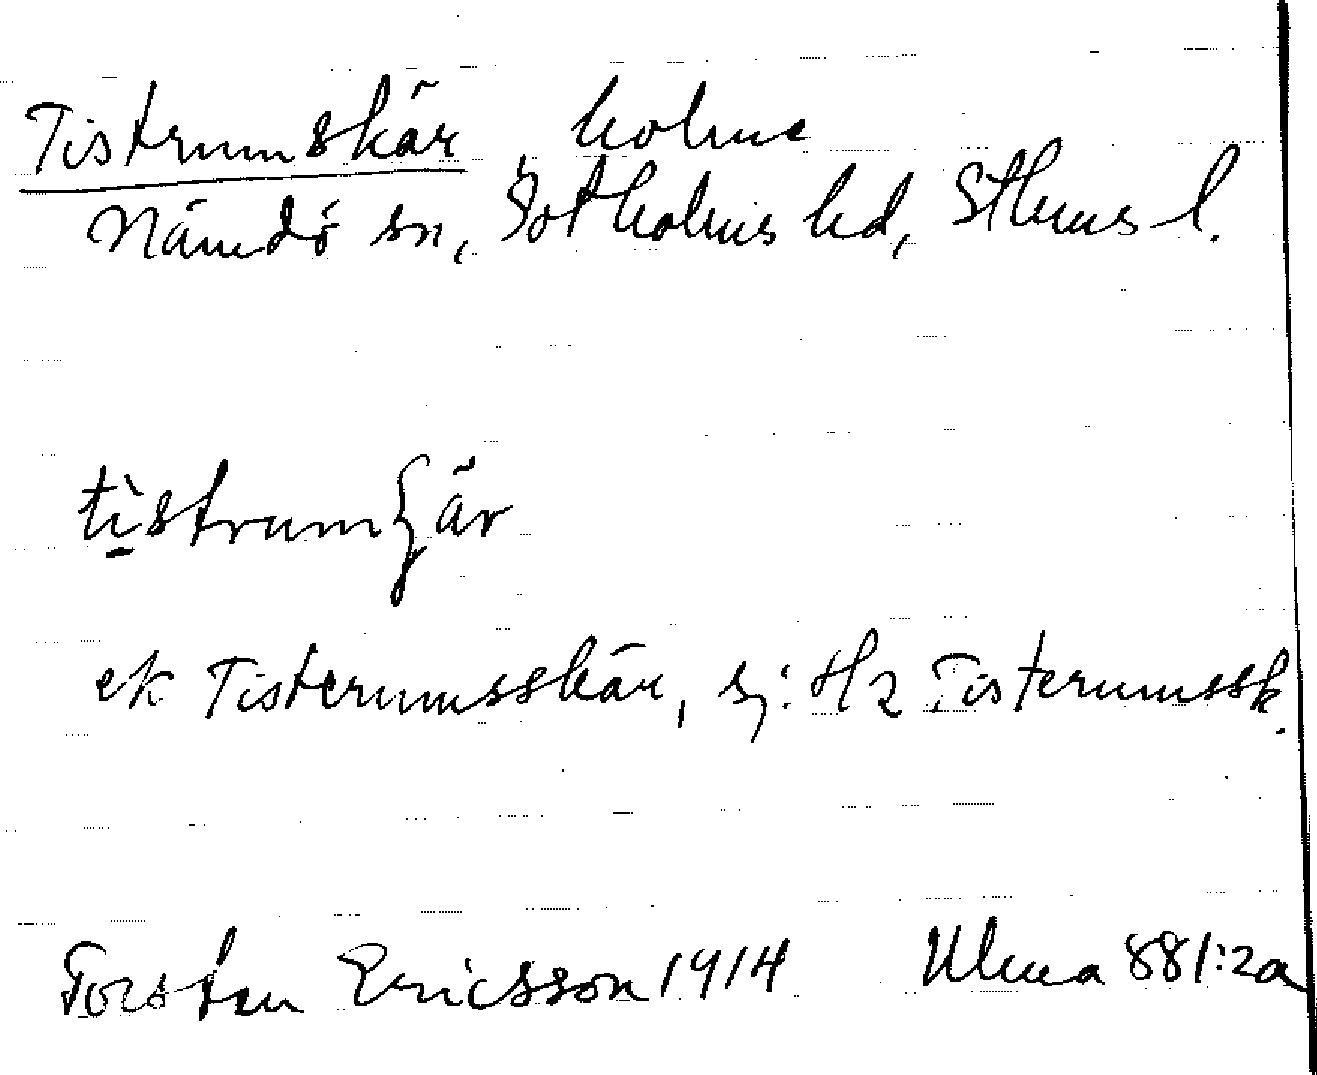 Tistrumskär, holme
Nämdö sn, Sotholms hd, Sthms l.
tistrumʃär
ek Tisterumsskär, sj: H2 Tisterumssk.
Torsten Ericsson 1914 Ulma 881:2a